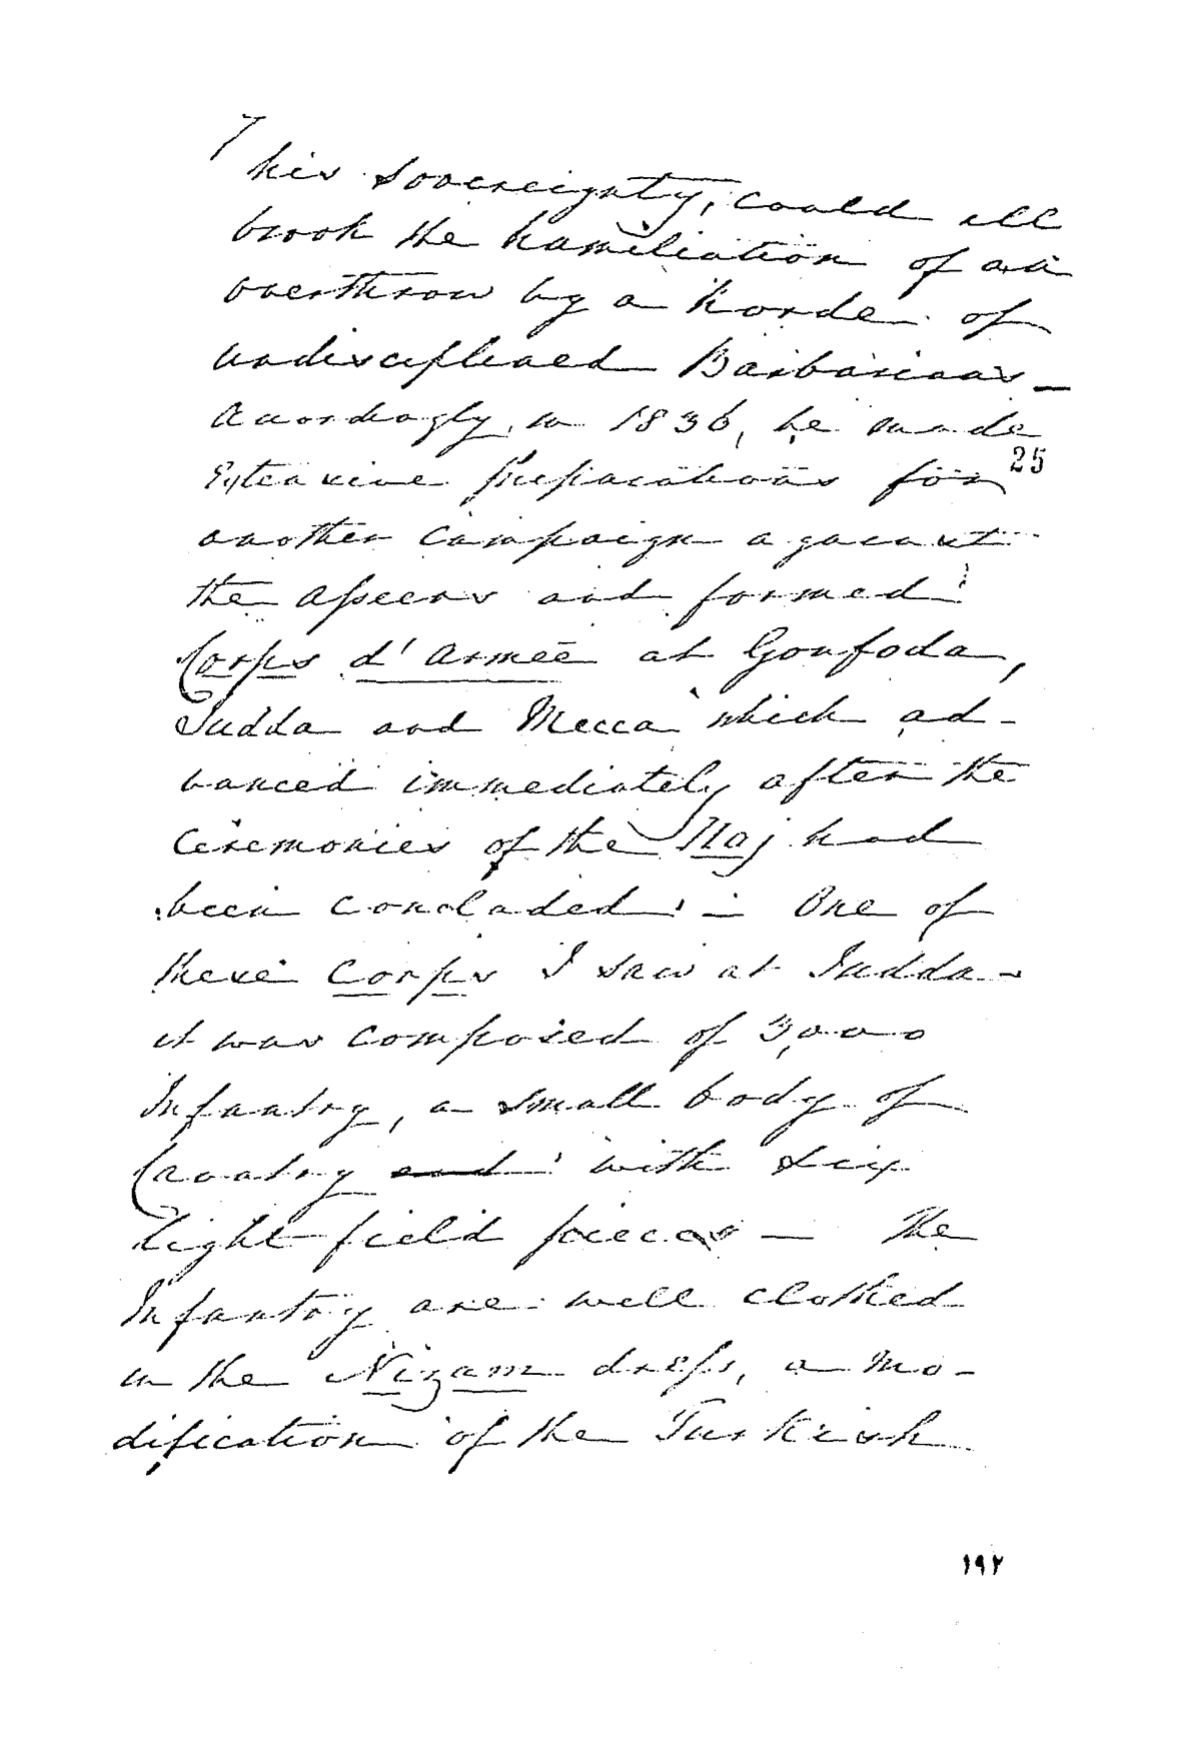 his sovereignty, could ill
brook the humiliation of an
overthrow by a horde of
undisciplined Barbarians —
Accordingly, in 1836, he made
Extensive preparations for
25
another campaign against
the Aseers and formed
Corps d'Armée at Gonfoda,
Judda and Mecca which ad-
vanced immediately after the
ceremonies of the Haj had
been concluded — One of
these Corps I saw at Judda -
it was composed of 3,000
Infantry, a small body of
Cavalry and with six
light field pieces — The
Infantry are well clothed
in the Nizam dress, a mo-
dification of the Turkish
١٩٢